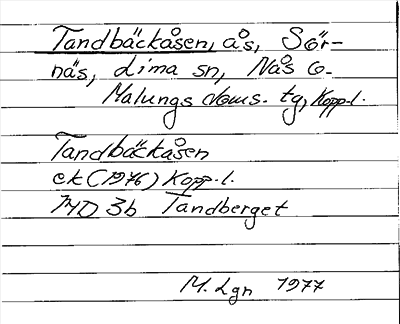 Tandbäckåsen, ås, Sör-
näs, Lima sn, Nås o.
Malungs doms. tg, Kopp.l.
Tandbäckåsen
ek (1976) Kopp.l.
14D 3b Tandberget
M. Lgn 1977